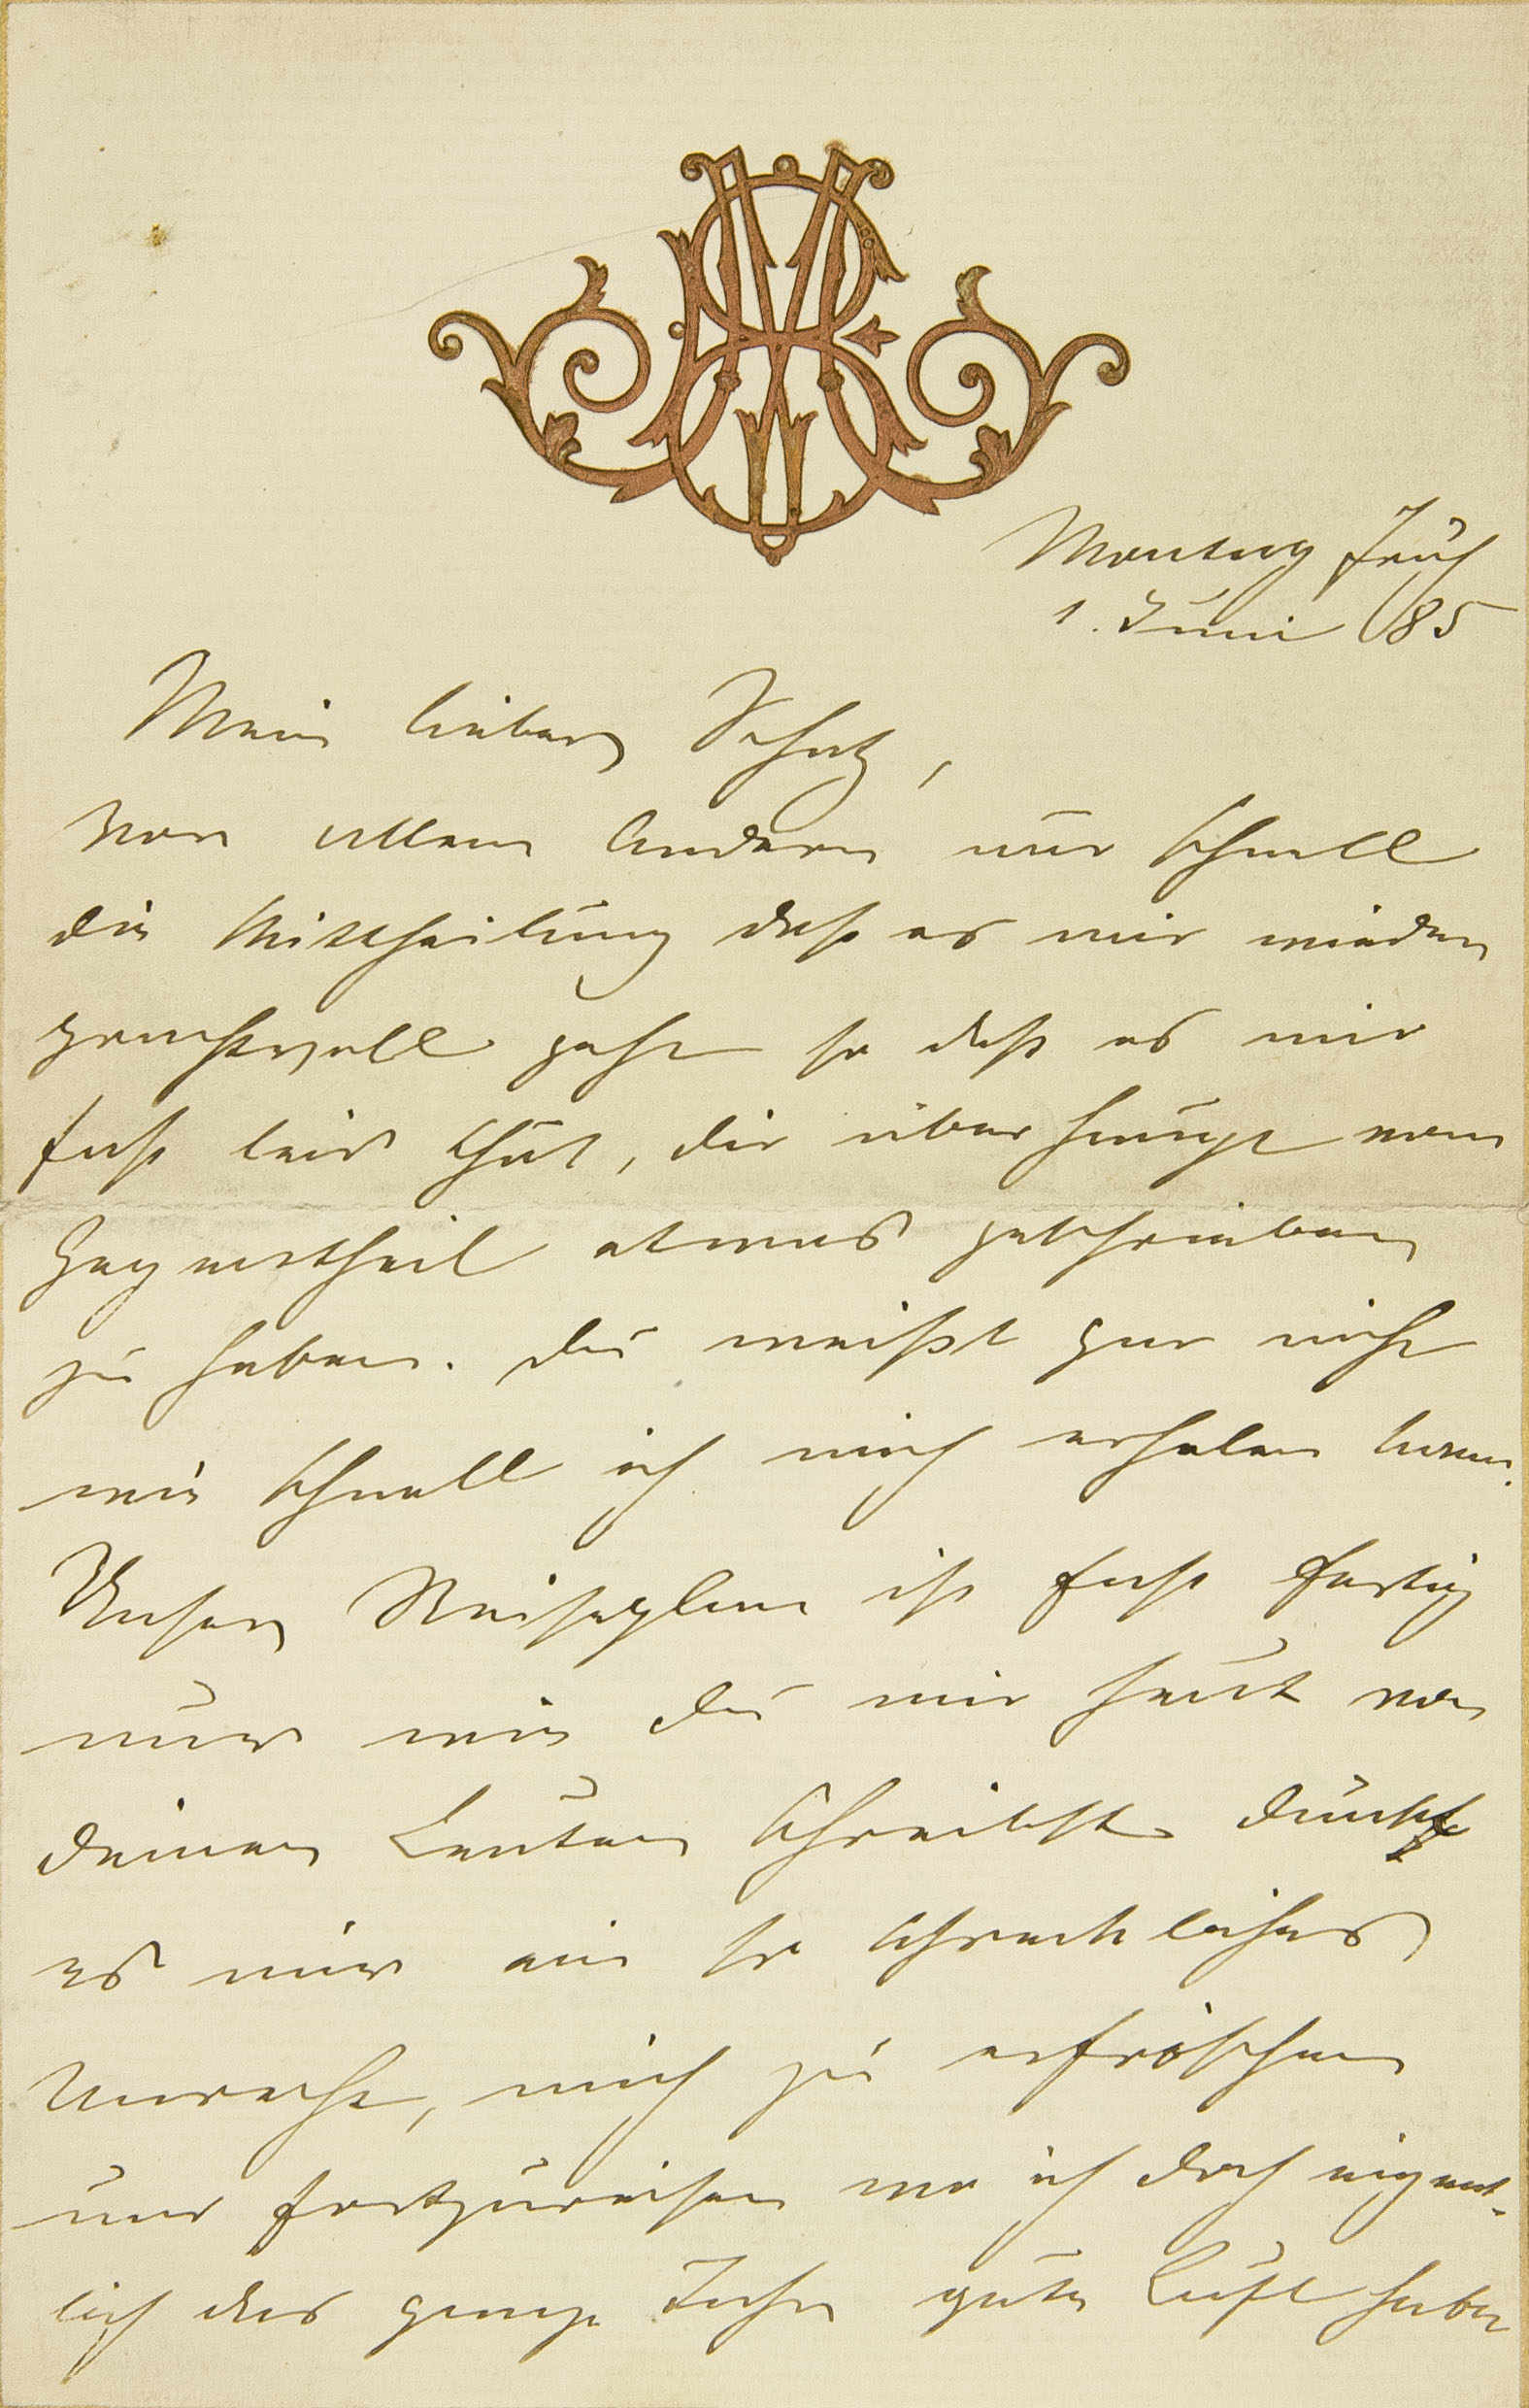 Montag früh
1. Juni 85
Mein lieber Schatz,
vor allem Andern nur schnell
die Mittheilung daß es mir wieder
prachtvoll geht so daß es mir
fast leid thut, dir überhaupt vom
Gegentheil etwas geschrieben
zu haben. Du weißt gar nicht
wie schnell ich mich erholen kann.
Unser Reiseplan ist fast fertig
nur wie du mir heut von
deinen Leuten schreibst dünkt
es mir ein so schreckliches
Unrecht, mich zu erfrischen
und fortzureisen wo ich doch eigent-
lich das ganze Jahr gute Luft habe